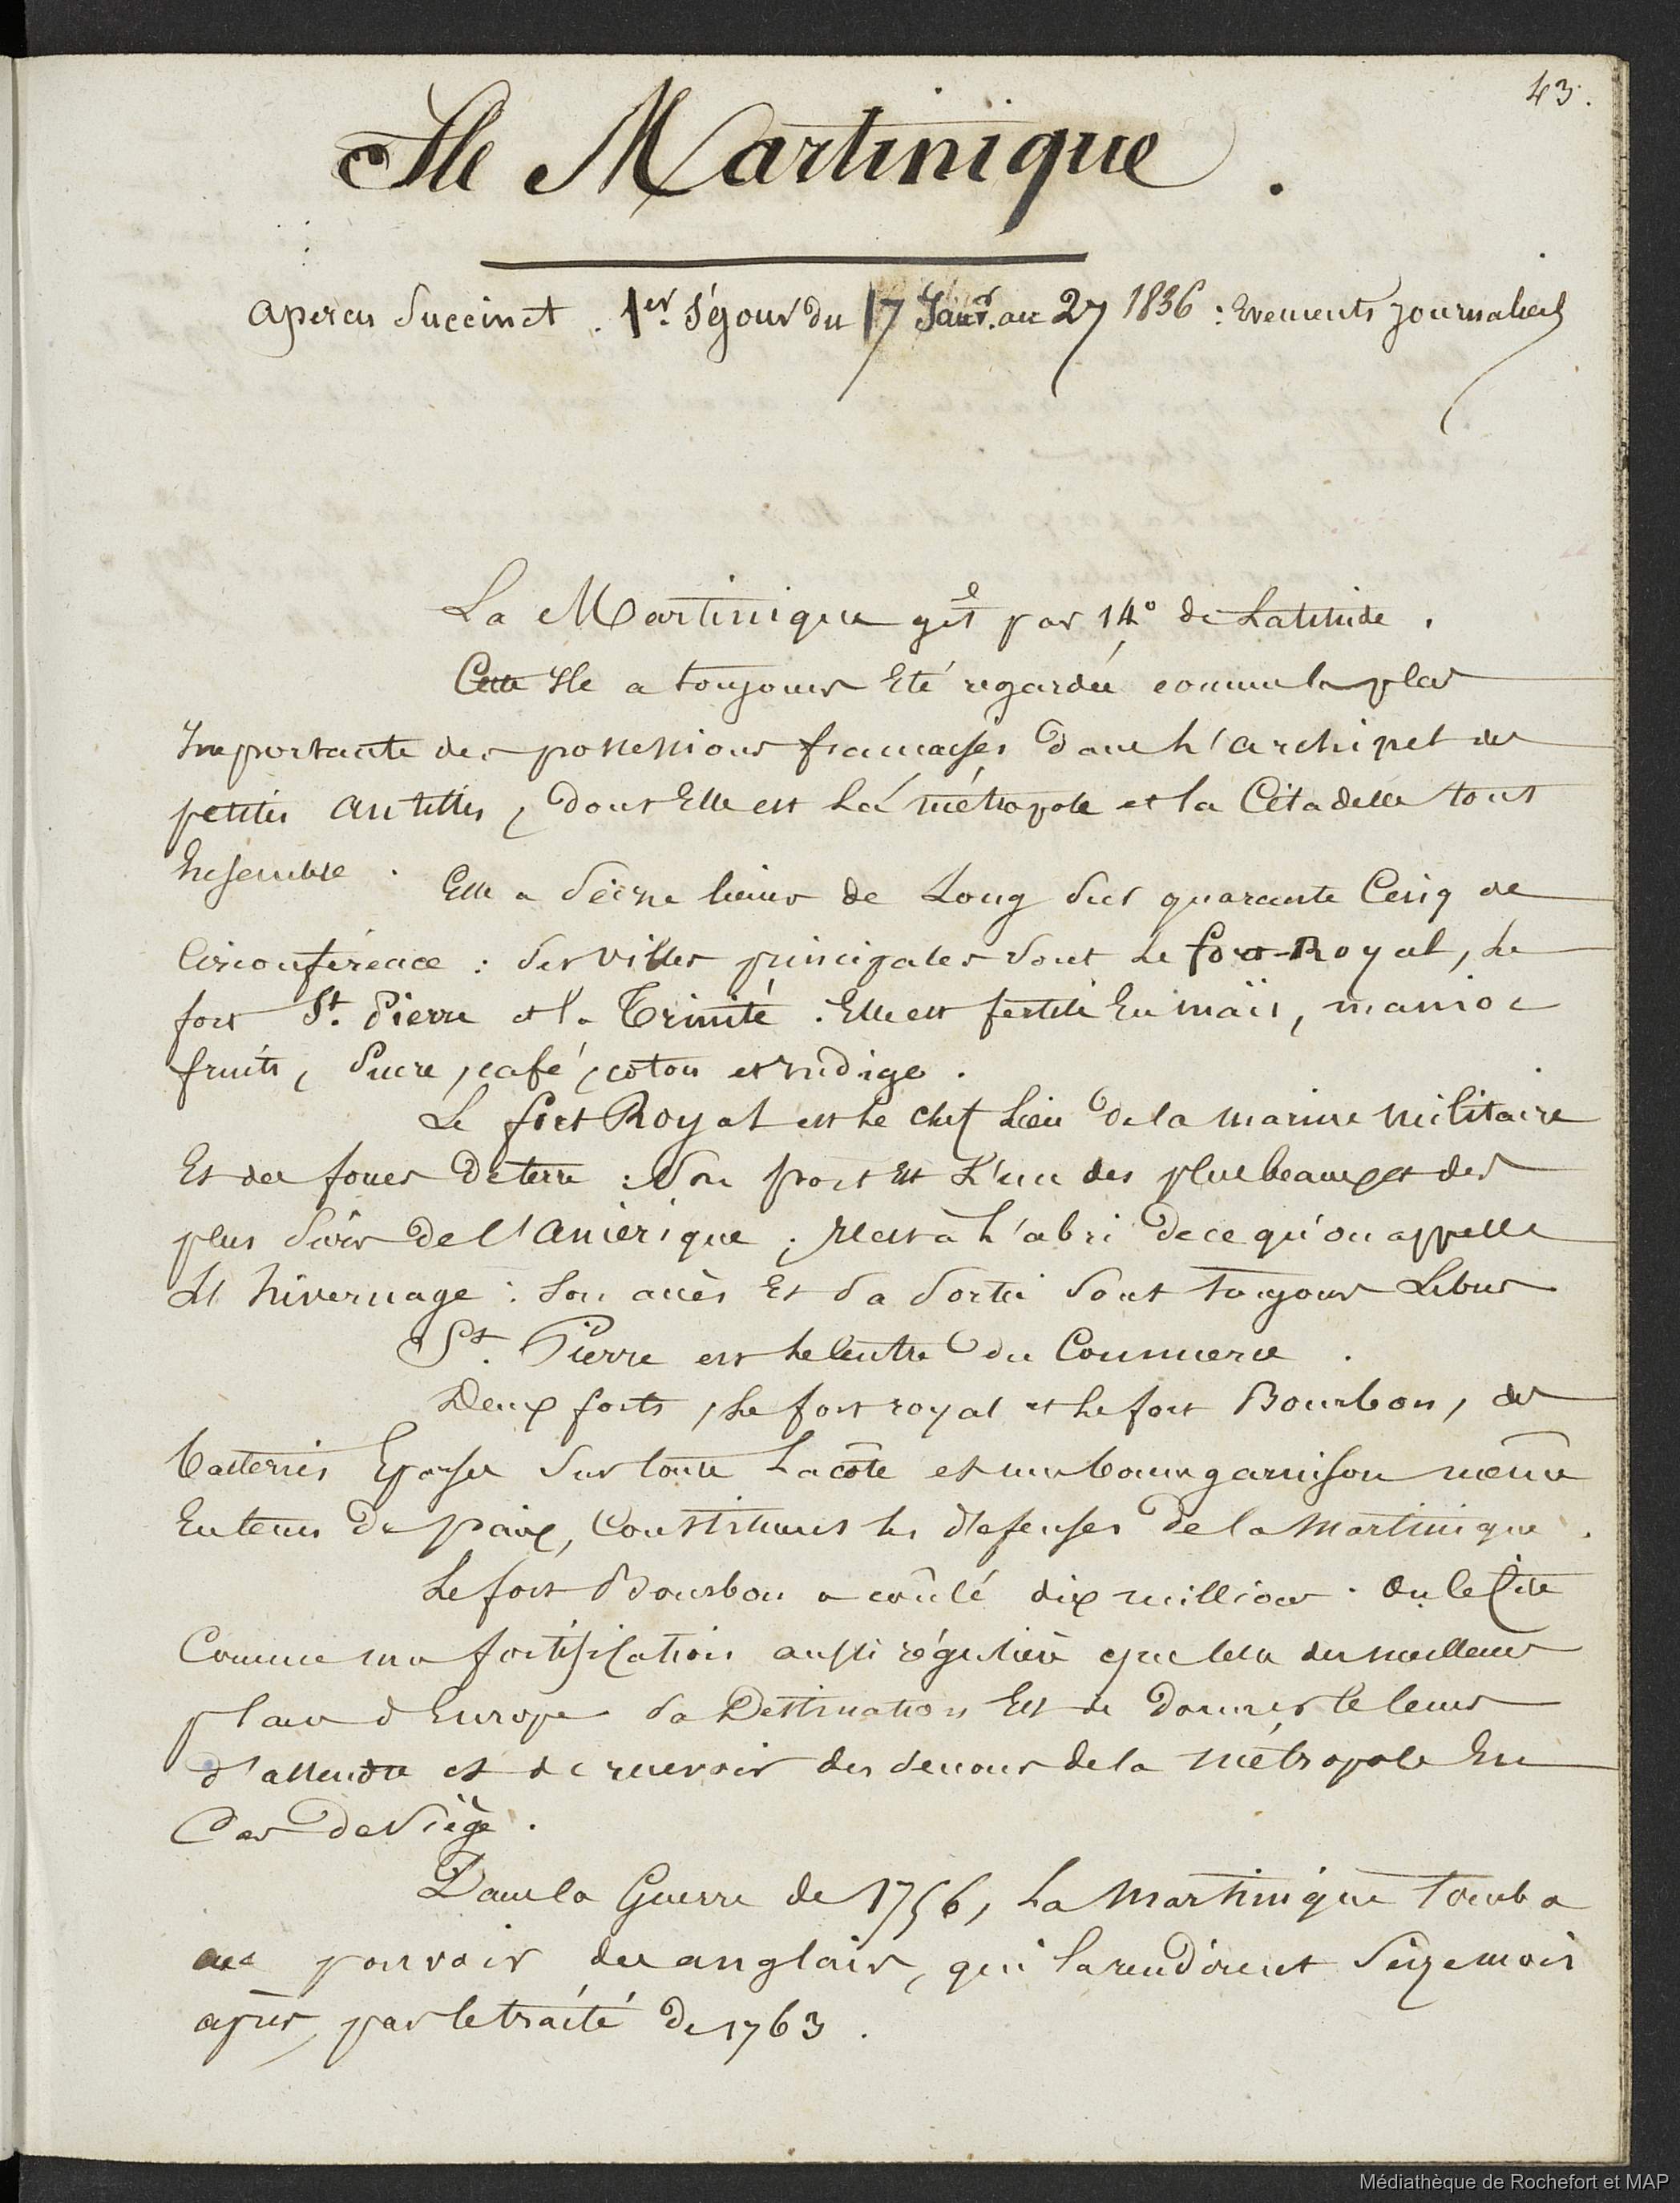 43.
Ile Martinique.
apercu Succinct. 1er. Séjour du 17 Janvr. au 27 1836 : Evements journaliers
La Martinique gît par 14° de Latitude.
Cette Ile a toujours Eté regardée comme la plus
Importante des possessions francaises dans l'archipel des
petites antilles, dont Elle est la métropole et la Citadelle tout
Ensemble.
Elle a Seize lieues de Long Sur quarante Cinq de
Circonférence : Ses villes principales Sont le fort-Royal, le
fort St. Pierre et la Trinité. Elle est fertile En maïs, manioc
fruits, Sucre, café, coton et indigo.
Le fort Royal est le chef Lieu de la marine militaire
Et des forces de terre : Son port Est L'un des plus beaux et des
plus Sûrs de l'amérique ; Il est à l'abri de ce qu'on appelle
L'hivernage : Son accès Et Sa Sortie Sont toujours Libres
St. Pierre est le Centre du Commerce.
Deux forts, le fort royal et le fort Bourbon, des
batteries Eparses Sur toute La côte et une bonne garnison même
En tems de paix, Constituent les défenses de la Martinique.
Le fort Bourbon a coûté dix millions. On le Cite
Comme une fortification aussi régulière que celle des meilleures
places d'Europe Sa Destination Est de donner le tems
d'attendre et de recevoir des Secours de la métropole En
Cas de Siège.
Dans la Guerre de 1756, La Martinique tomba
au pouvoir des anglais, qui la rendirent Seize mois
après, par le traité de 1763.
Médiathèque de Rochefort et MAP